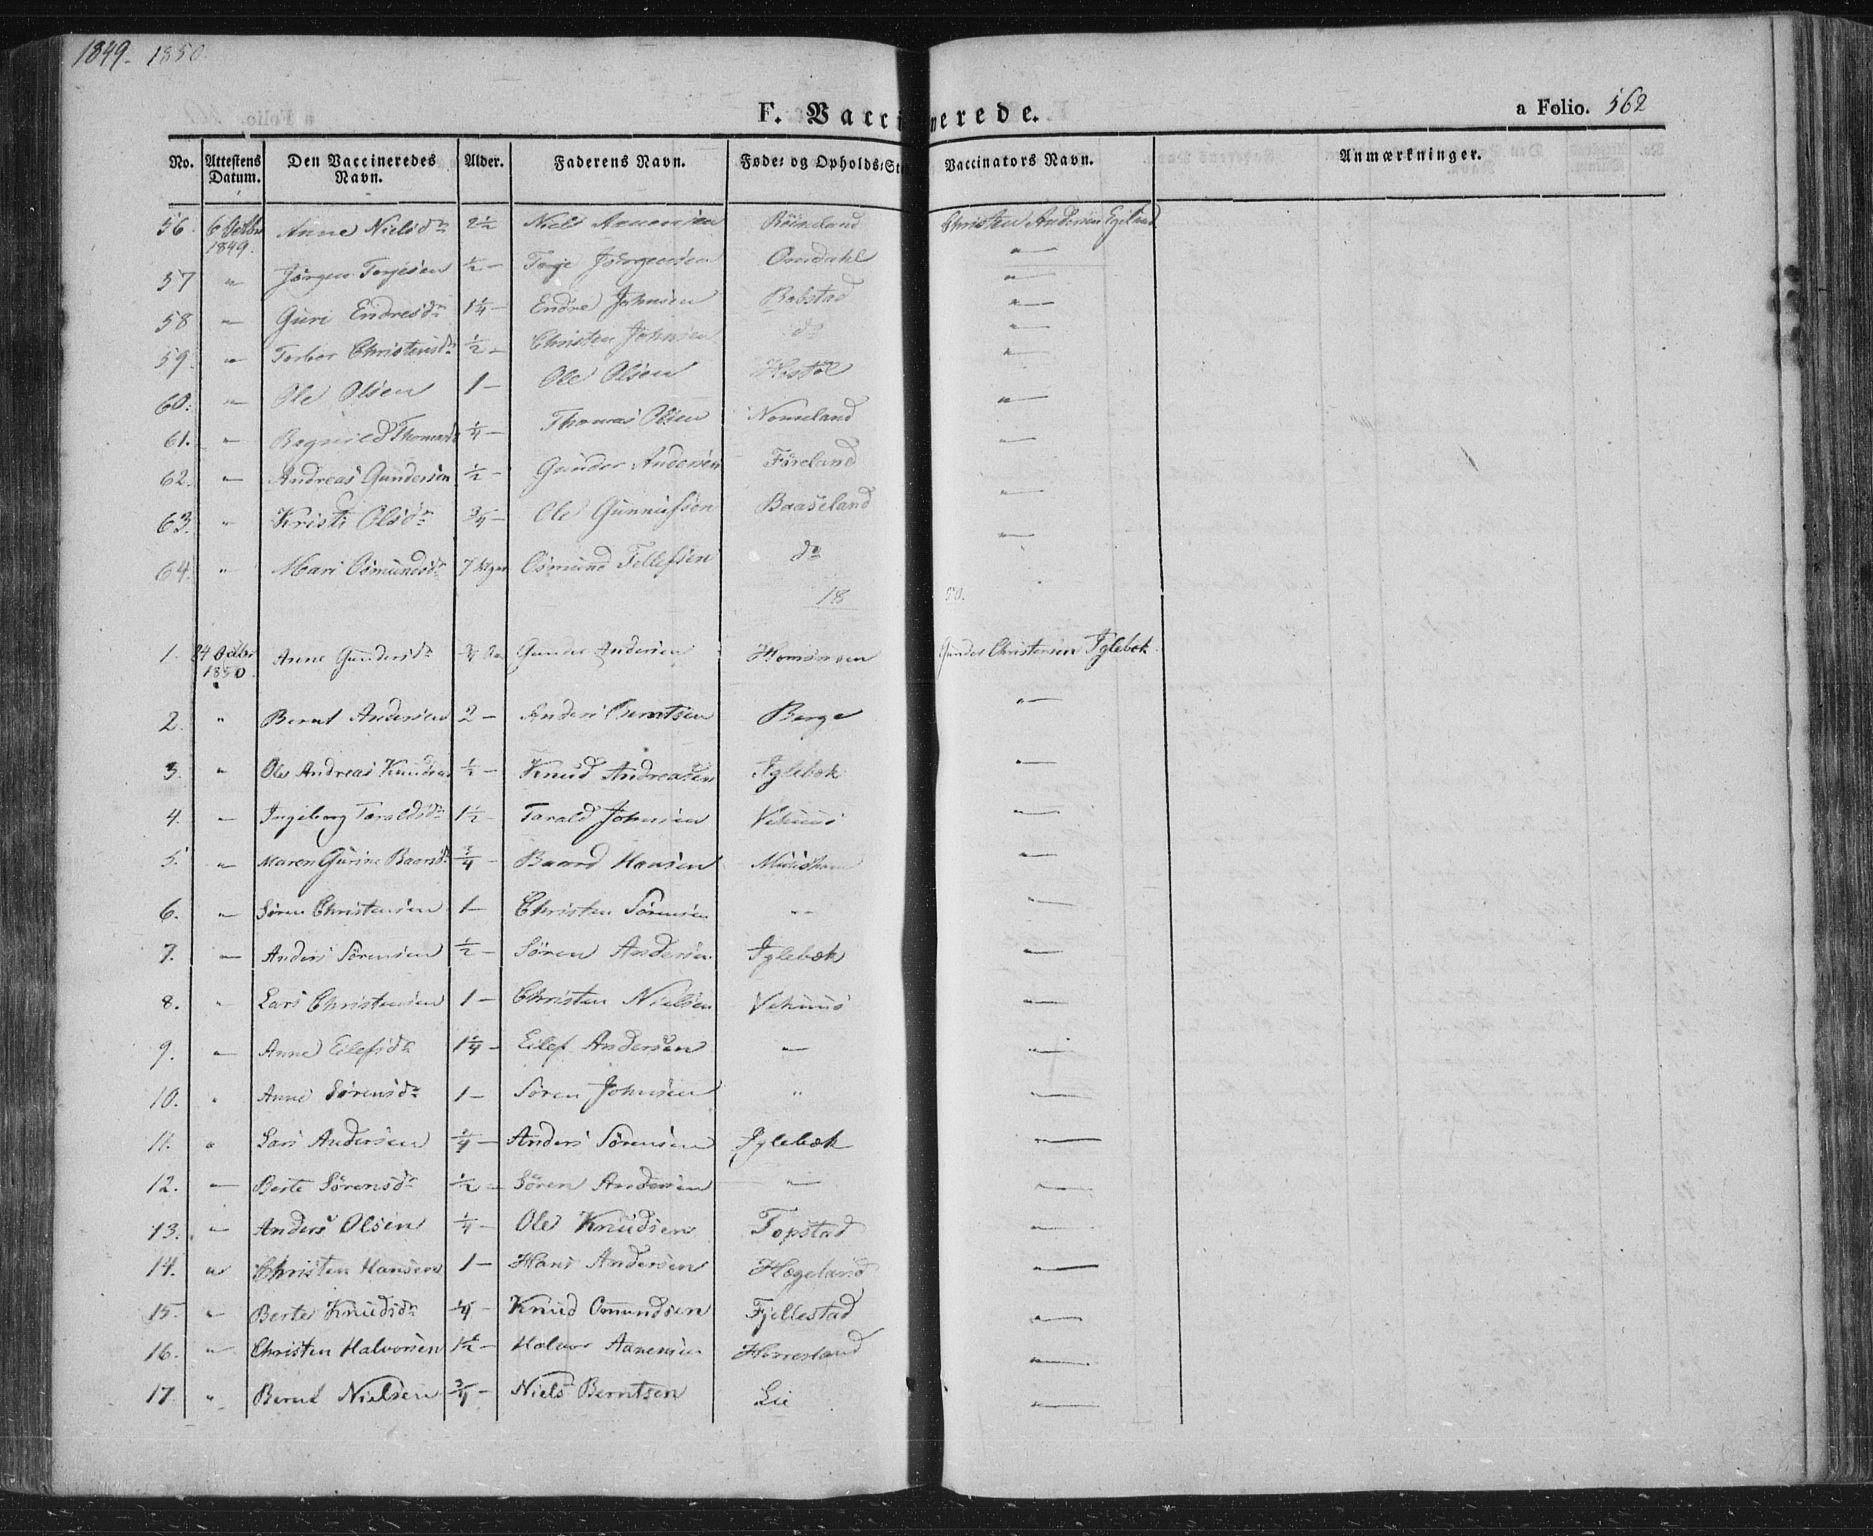 1849. 1850.
F. Vaccinerede. a Folio. 562
No. Attestens Datum. Den Vaccineredes Navn. Alder. Faderens Navn. Føde- og Opholds-St Vaccinators Navn. Anmærkninger.
56. 6 Octbr 1849. Anne Nielsdr 2½ Niels Christen Andersen Egeland
57 " Jörgen Terjesen ½ – Terje Jörgensen Omdahl "
58 " Guri Endresdr 1¼ – Endre Johnsen Bobstad "
59. " Torbor Christensdr ½ – Christen Johnsen do "
60. " Ole Olsen 1 – Ole Olsen "
61. " Thomasdr ¼ – Thomas Olsen Nomeland "
62. " Andreas Gundersen ½ – Gunder Andersen "
63. " Kristi Olsdr ¾ – Ole Gunnufsen Baaseland "
64. " Mari Osmundsdr 7 Osmund Tellefsen do "
18 50.
1. 24 Octbr 1850. Anne Gundersdr Gunder Andersen Gunder Christensen Iglebæk.
2. " Bernt Andersen 2 – Anders Berntsen Berge "
3. " Ole Andreas Knudsen ½ – Knud Andreasen Iglebæk "
4. – Ingeborg Taraldsdr 1½ – Tarald Johnsen Vehuus "
5. " Maren Gurine Baardsdr ¾ – Baard Hansen "
6. – Sören Christensen 1 – Christen Sörensen " "
7. – Anders Sörensen ½ – Sören Andersen Iglebæk "
8. " Lars Christensen 1 – Christen Nielsen Vehuus "
9. – Anne Eilefsdr 1¼ – Eilef Andersen – "
10. " Anne Sörensdr 1 – Sören Johnsen " "
11. " Lars Andersen ¼ – Anders Sörensen Iglebæk "
12. – Berte Sörensdr ½ – Sören Andersen – "
13. – Anders Olsen ¼ – Ole Knudsen Topstad "
14. " Christen Hansen 1 – Hans Andersen Hægeland "
15. " Berte Knudsdr ¼ – Knud Omundsen Fjellestad "
16. " Christen Halvorsen 1½ – Halvor Aanensen "
17. " Bernt Nielsen ¾ – Niels Berntsen Lie "